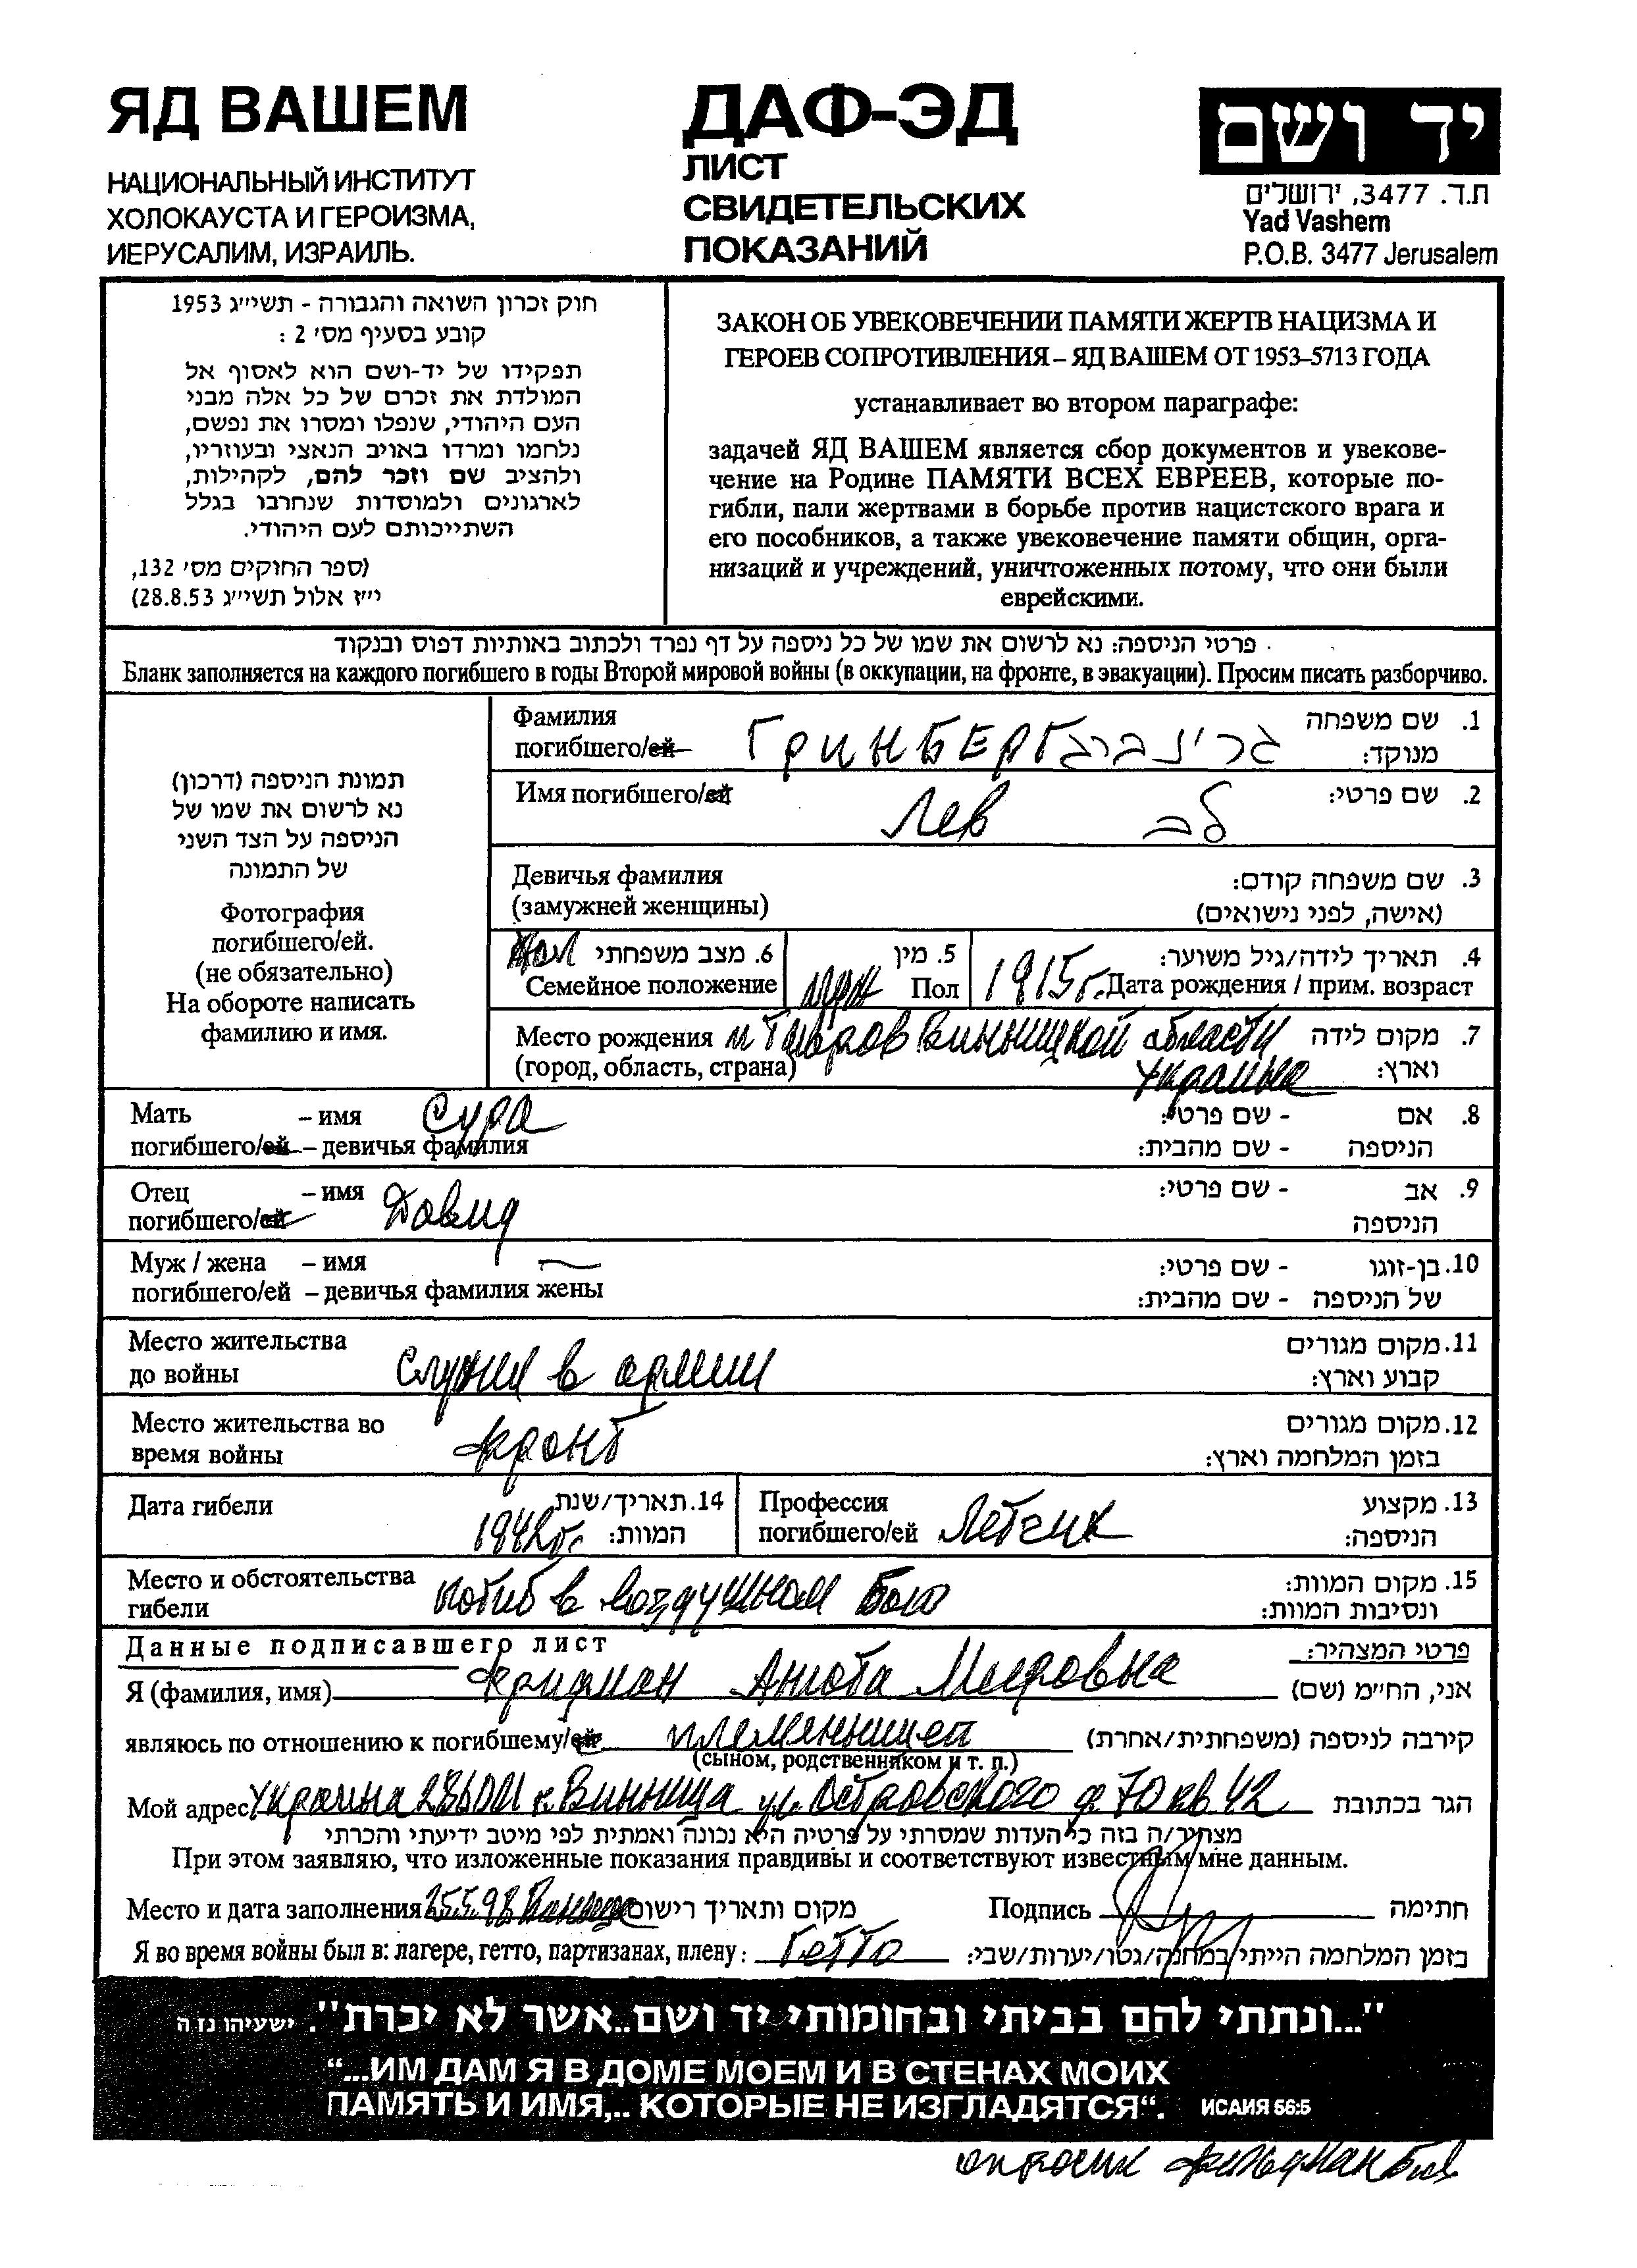 ЯД ВАШЕМ
НАЦИОНАЛЬНЫЙ ИНСТИТУТ
ХОЛОКАУСТА И ГЕРОИЗМА,
ИЕРУСАЛИМ, ИЗРАИЛЬ.
ДАФ-ЭД
ЛИСТ
СВИДЕТЕЛЬСКИХ
ПОКАЗАНИЙ
יד ושם
ת.ד. 3477, ירושלים
Yad Vashem
P.O.B. 3477 Jerusalem
חוק זכרון השואה והגבורה - תשי״ג 1953
קובע בסעיף מס׳ 2 :
תפקידו של יד-ושם הוא לאסוף אל
המולדת את זכרם של כל אלה מבני
העם היהודי, שנפלו ומסרו את נפשם,
נלחמו ומרדו באויב הנאצי ובעוזריו,
ולהציב שם וזכר להם, לקהילות,
לארגונים ולמוסדות שנחרבו בגלל
השתייכותם לעם היהודי.
(ספר החוקים מס׳ 132,
י״ז אלול תשי״ג 28.8.53)
ЗАКОН ОБ УВЕКОВЕЧЕНИИ ПАМЯТИ ЖЕРТВ НАЦИЗМА И
ГЕРОЕВ СОПРОТИВЛЕНИЯ – ЯД ВАШЕМ ОТ 1953–5713 ГОДА
устанавливает во втором параграфе:
задачей ЯД ВАШЕМ является сбор документов и увекове-
чение на Родине ПАМЯТИ ВСЕХ ЕВРЕЕВ, которые по-
гибли, пали жертвами в борьбе против нацистского врага и
его пособников, а также увековечение памяти общин, орга-
низаций и учреждений, уничтоженных потому, что они были
еврейскими.
פרטי הניספה: נא לרשום את שמו של כל ניספה על דף נפרד ולכתוב באותיות דפוס ובנקוד
Бланк заполняется на каждого погибшего в годы Второй мировой войны (в оккупации, на фронте, в эвакуации). Просим писать разборчиво.
תמונת הניספה (דרכון)
נא לרשום את שמו של
הניספה על הצד השני
של התמונה
Фотография
погибшего/ей.
(не обязательно)
На обороте написать
фамилию и имя.
Фамилия 1. שם משפחה
погибшего/ей ГРИНБЕРГ גרינברג מנוקד:
Имя погибшего/ей Лев לב 2. שם פרטי:
Девичья фамилия 3. שם משפחה קודם:
(замужней женщины) (אישה, לפני נישואים)
хол 6. מצב משפחתי 5. מין 4. תאריך לידה/גיל משוער:
Семейное положение муж Пол 1915г. Дата рождения / прим. возраст
Место рождения м Тывров Винницкой области 7. מקום לידה
(город, область, страна) Украина וארץ:
Мать – имя Сура - שם פרטי: 8. אם
погибшего/ей – девичья фамилия - שם מהבית: הניספה
Отец – имя Давид - שם פרטי: 9. אב
погибшего/ей הניספה
Муж / жена – имя — - שם פרטי: 10. בן-זוגו
погибшего/ей – девичья фамилия жены - שם מהבית: של הניספה
Место жительства 11. מקום מגורים
до войны служил в армии קבוע וארץ:
Место жительства во 12. מקום מגורים
время войны фронт בזמן המלחמה וארץ:
Дата гибели 14. תאריך/שנת Профессия 13. מקצוע
1942г. המוות: погибшего/ей Летчик הניספה:
Место и обстоятельства 15. מקום המוות:
гибели погиб в воздушном бою ונסיבות המוות:
Данные подписавшего лист פרטי המצהיר:
Я (фамилия, имя) Фридман Анюта Мееровна אני, החי״מ (שם)
являюсь по отношению к погибшему/ей племянницей קירבה לניספה (משפחתית/אחרת)
(сыном, родственником и т. п.)
Мой адрес Украина г. Винница ул. Островского д 70 кв 42 הגר בכתובת
מצהיר/ה בזה כי העדות שמסרתי על פרטיה היא נכונה ואמתית לפי מיטב ידיעתי והכרתי
При этом заявляю, что изложенные показания правдивы и соответствуют известным мне данным.
Место и дата заполнения 25.5.98 Винница מקום ותאריך רישום Подпись חתימה
Я во время войны был в: лагере, гетто, партизанах, плену: Гетто בזמן המלחמה הייתי במחנה/גטו/יערות/שבי:
"...ונתתי להם בביתי ובחומותי יד ושם..אשר לא יכרת". ישעיהו נו ה
“...ИМ ДАМ Я В ДОМЕ МОЕМ И В СТЕНАХ МОИХ
ПАМЯТЬ И ИМЯ,.. КОТОРЫЕ НЕ ИЗГЛАДЯТСЯ“. ИСАИЯ 56:5
опросил Фельдман